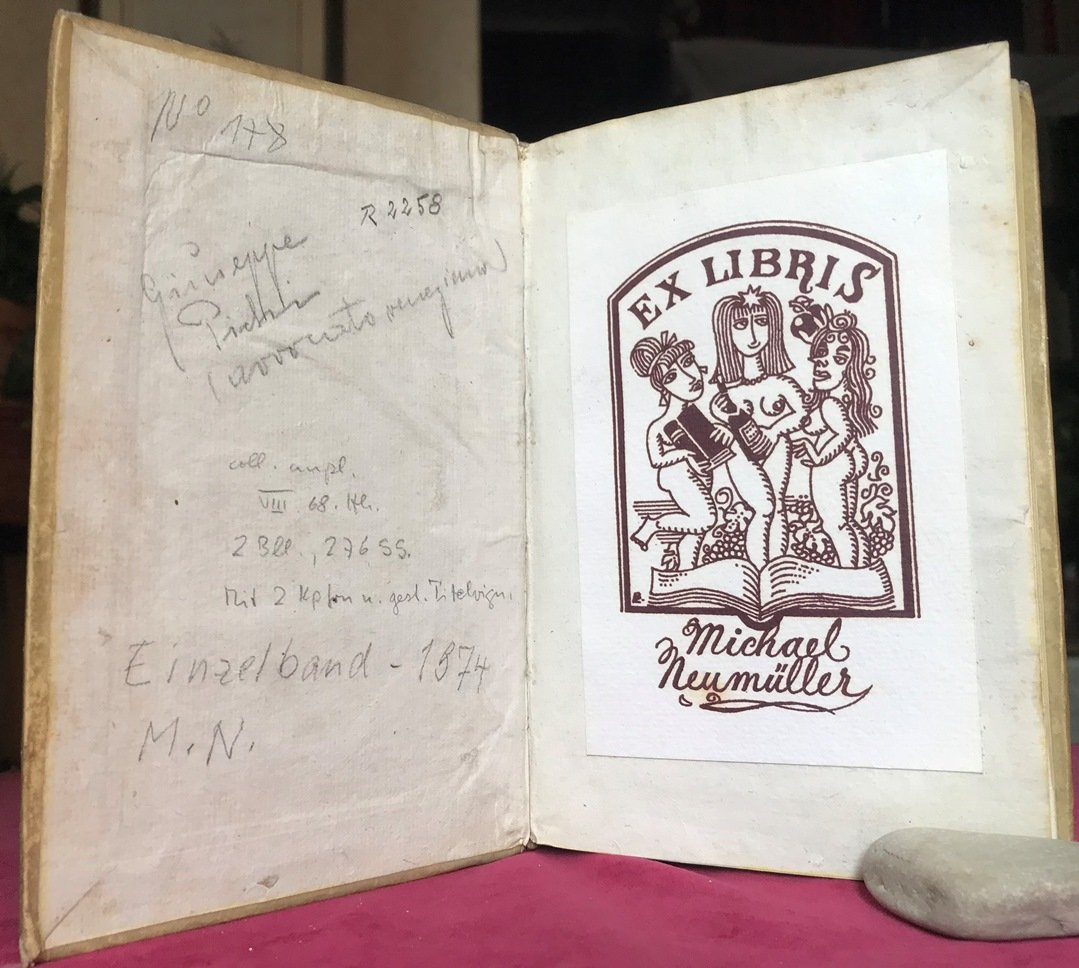 No
178
R 2258
Giuseppe
avvocato veneziano
coll. compl.
VIII 68. Kl.
2 Bll., 276 SS.
Mit 2 Kpfrn u. gest. Titelvign.
Einzelband - 1974
M.N.
EX LIBRIS
Michael
Neumüller